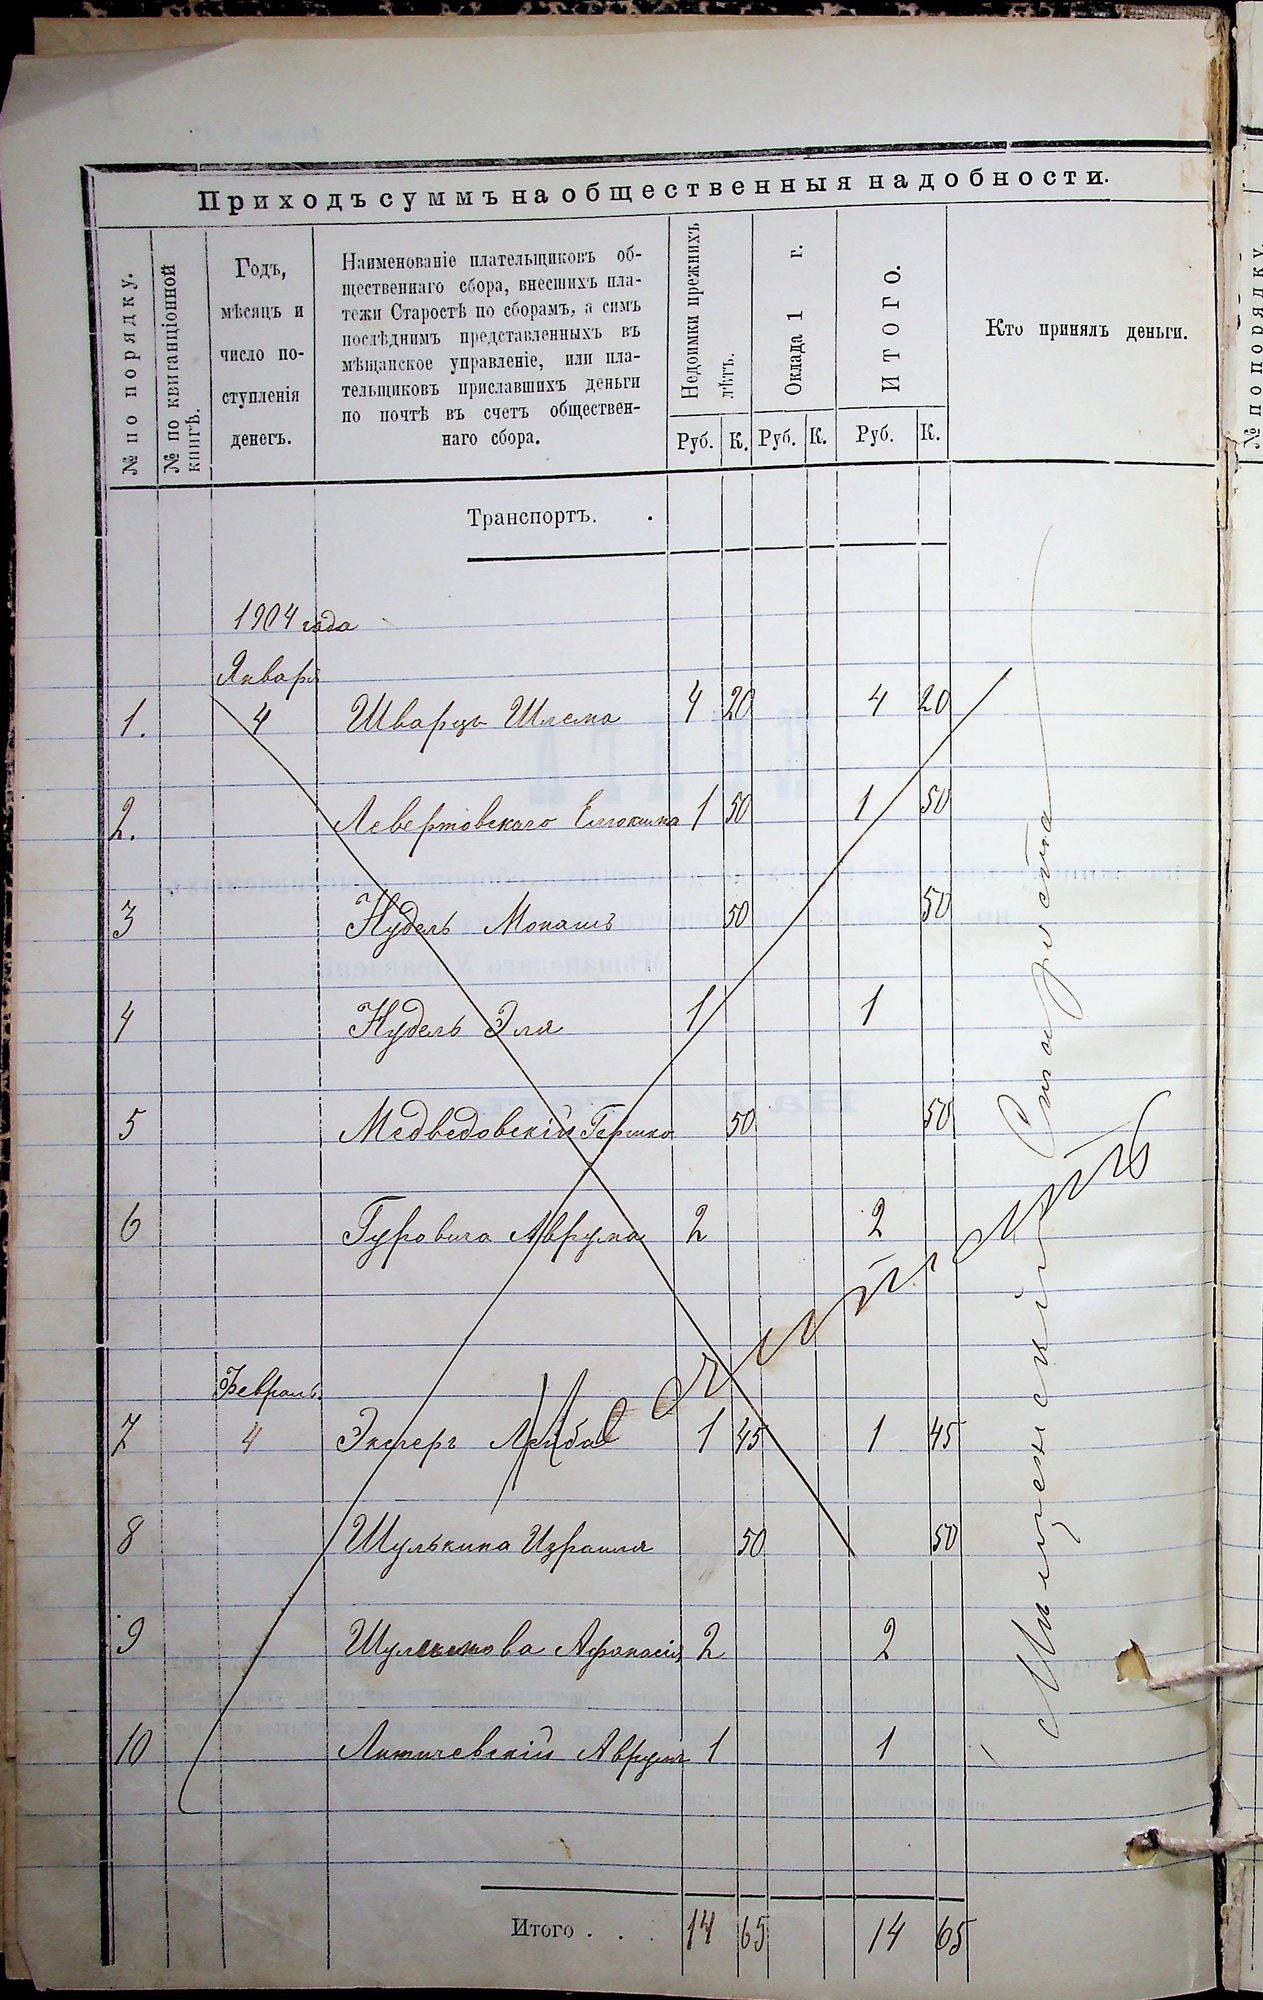 Приходъ суммъ на общественныя надобности.
№ по порядку.
№ по квитанціонной
книгѣ.
Годъ,
мѣсяцъ и
число по-
ступленія
денегъ.
Наименованіе плательщиковъ об-
щественнаго сбора, внесшихъ пла-
тежи Старостѣ по сборамъ, а симъ
послѣднимъ представленныхъ въ
мѣщанское управленіе, или пла-
тельщиковъ приславшихъ деньги
по почтѣ въ счетъ обществен-
наго сбора.
Недоимки прежнихъ
лѣтъ.
Оклада 1 г.
ИТОГО.
Кто принялъ деньги.
Руб. К. Руб. К. Руб. К.
Транспортъ.
1904 года
Январь
1. 4 Шварцъ Шлема 4 20 4 20
2. Левертовскаго 1 50 1 50
3 Нудель Монашъ 50 50
4 Нудель Эля 1 1
5 Медведовскій Гершко 50 50
6 Гуровича Аврума 2 2
Февраль
7 4 Лейба 1 45 1 45
8 Шулькина Израиля 50 50
9 Афанасія 2 2
10 Литичевскій Аврумъ 1 1
Итого . . . 14 65 14 65
Мѣщанскій Староста
№ по порядку.